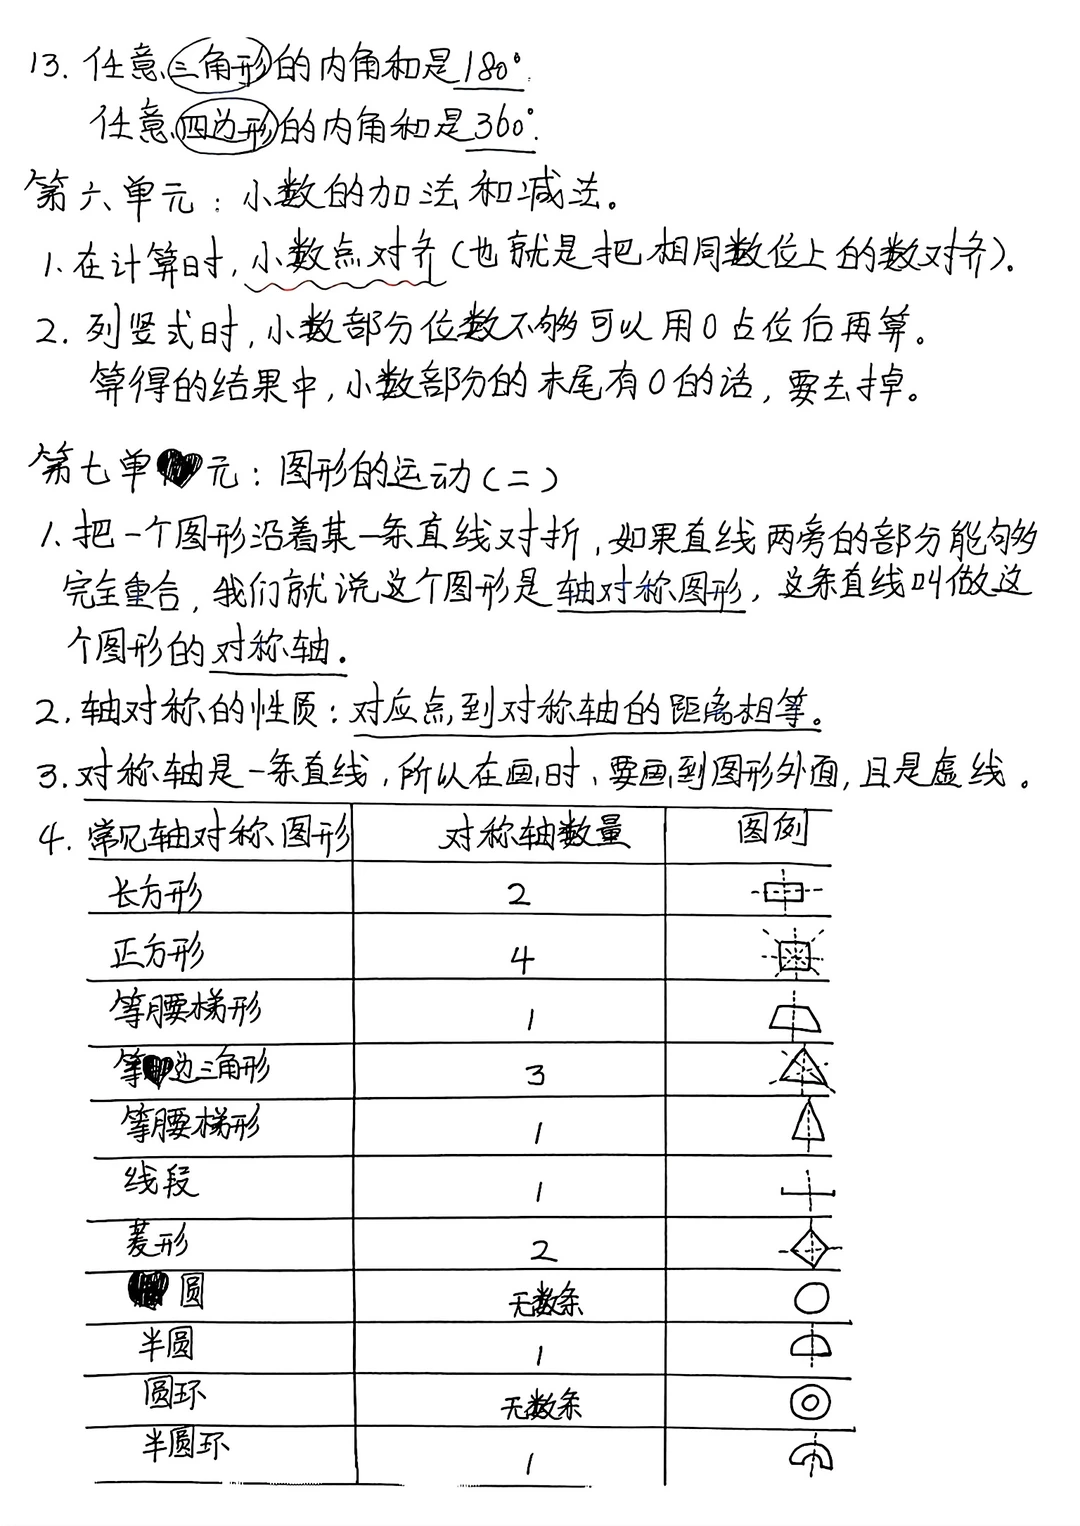 13. 任意三角形的内角和是180°.
任意四边形的内角和是360°.
第六单元：小数的加法和减法。
1.在计算时,小数点对齐(也就是把相同数位上的数对齐).
2.列竖式时,小数部分位数不够可以用0占位后再算。
算得的结果中,小数部分的末尾有0的话,要去掉。
第七单元:图形的运动(二)
1.把一个图形沿着某一条直线对折,如果直线两旁的部分能够
完全重合,我们就说这个图形是轴对称图形,这条直线叫做这
个图形的对称轴.
2.轴对称的性质:对应点到对称轴的距离相等。
3.对称轴是一条直线,所以在画时、要画到图形外面,且是虚线。
4.常见轴对称图形 对称轴数量 图例
长方形 2
正方形 4
等腰梯形 1
等边三角形 3
等腰梯形 1
线段 1
菱形 2
圆 无数条
半圆 1
圆环 无数条
半圆环 1